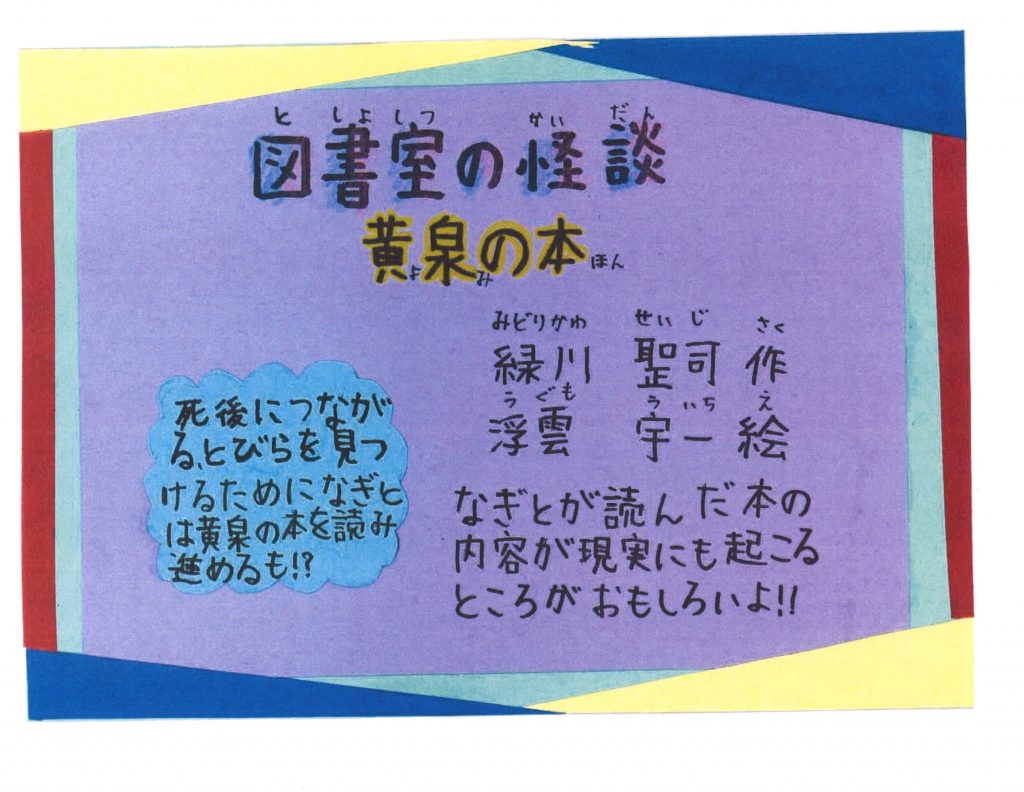 としょしつ かいだん
図書室の怪談
黄泉の本 ほん
よみ
みどりかわ せいじ さく
緑川 聖司 作
うぐも ういち え
浮雲 宇一 絵
死後につなが
る、とびらを見つ
けるためになぎと
は黄泉の本を読み
進めるも!?
なぎとが読んだ本の
内容が現実にも起こる
ところがおもしろいよ!!